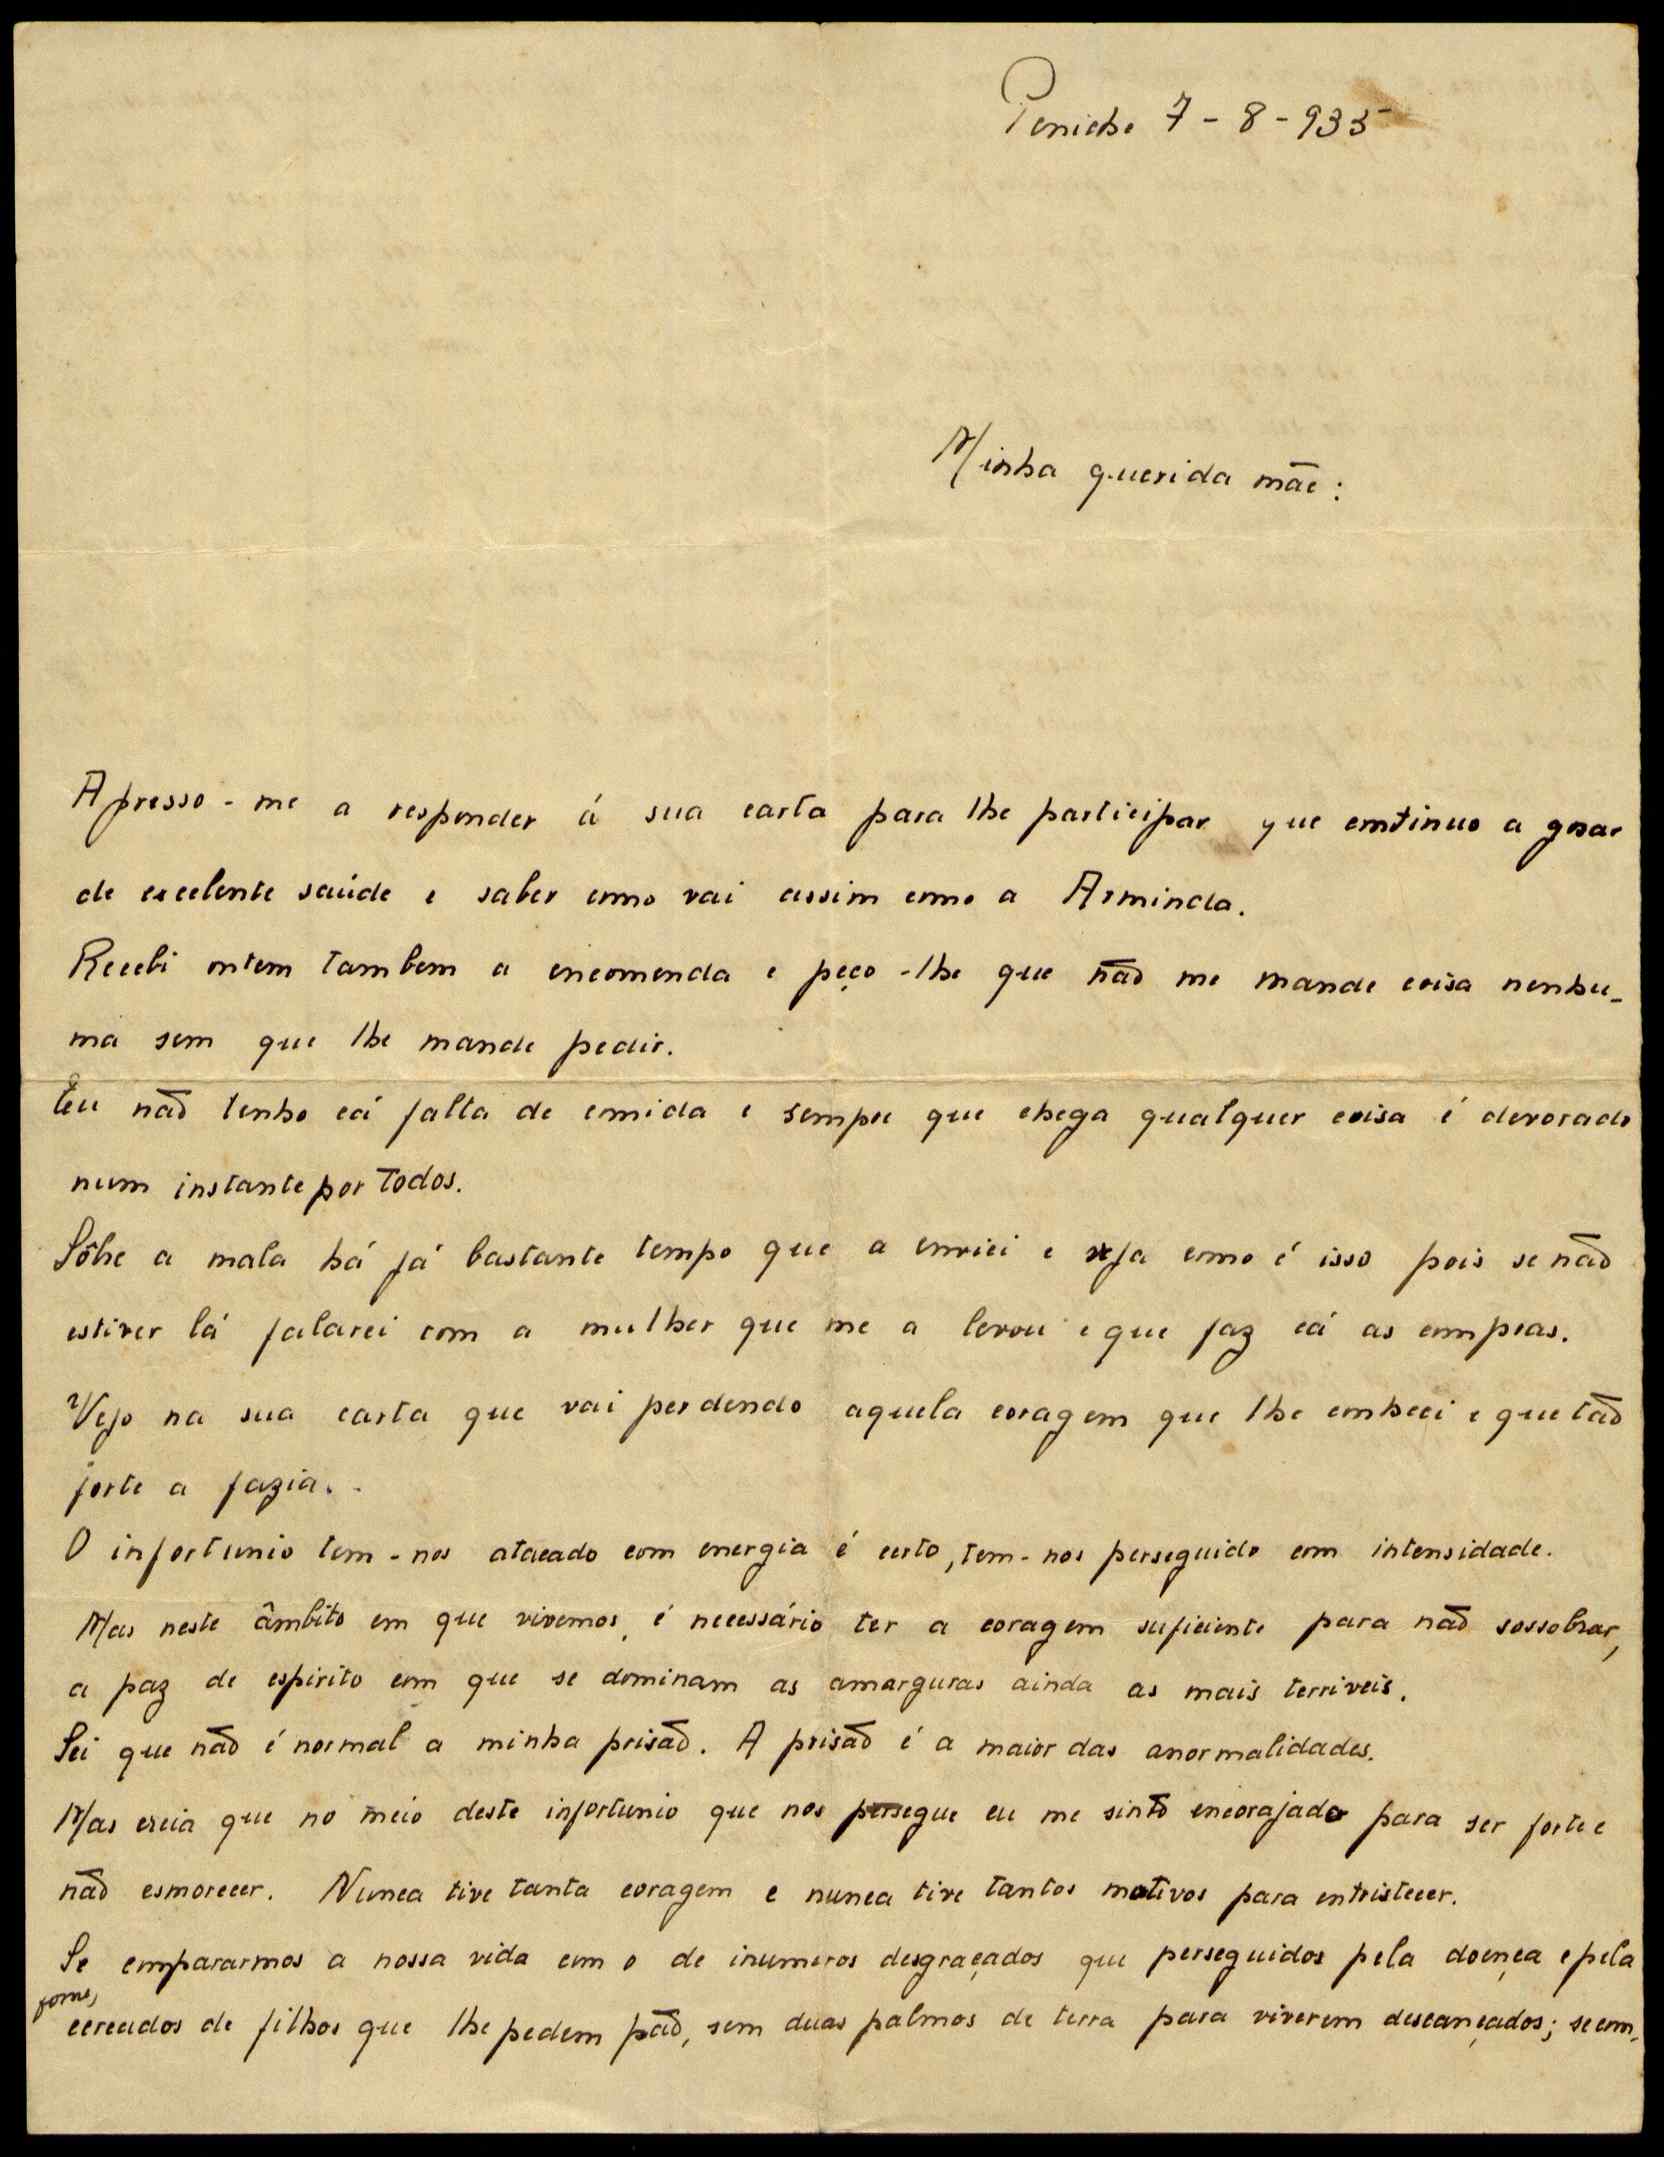 Peniche 7-8-935
Minha querida mãe:
Apresso-me a responder á sua carta para lhe participar que continuo a gosar
de excelente saúde e saber como vai assim como a Arminda.
Recebi ontem tambem a encomenda e peço-lhe que não me mande coisa nenhu-
ma sem que lhe mande pedir.
Eu não tenho cá falta de comida e sempre que chega qualquer coisa é devorado
num instante por todos.
Sôbre a mala há já bastante tempo que a enviei e veja como é isso pois se não
estiver lá falarei com a mulher que me a levou e que faz cá as compras.
Vejo na sua carta que vai perdendo aquela coragem que lhe conheci e que tão
forte a fazia.
O infortunio tem-nos atacado com energia é certo, tem-nos perseguido com intensidade.
Mas neste âmbito em que vivemos, é necessário ter a coragem suficiente para não sossobrar,
a paz de espirito com que se dominam as amarguras ainda as mais terriveis.
Sei que não é normal a minha prisão. A prisão é a maior das anormalidades.
Mas creia que no meio deste infortunio que nos persegue eu me sinto encorajado para ser forte e
não esmorecer. Nunca tive tanta coragem e nunca tive tantos motivos para entristecer.
Se compararmos a nossa vida com o de inumeros desgraçados que perseguidos pela doença e pela
fome,
cercados de filhos que lhe pedem pão, sem duas palmos de terra para viverem descançados; se com-